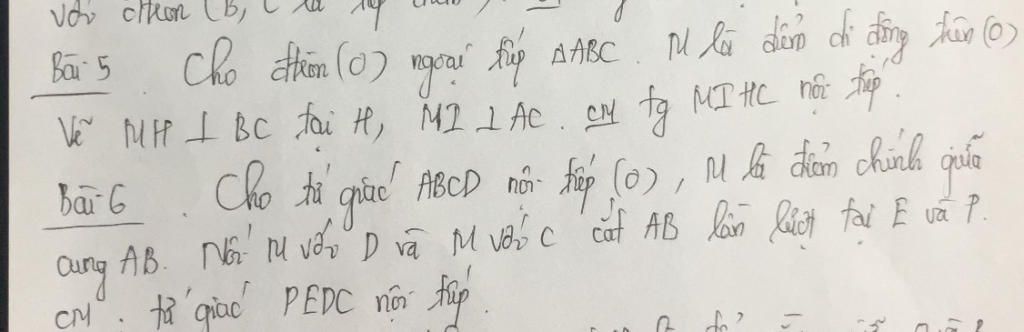 với đtròn (B, C là tiếp điểm)
Bài 5 Cho đtròn (O) ngoại tiếp ΔABC. M là điểm di động trên (O)
Vẽ MH ⊥ BC tại H, MI ⊥ AC. CM tg MIHC nội tiếp.
Bài 6. Cho tứ giác ABCD nội tiếp (O), M là điểm chính giữa
cung AB. Nối M với D và M với C cắt AB lần lượt tại E và P.
CM. tứ giác PEDC nội tiếp.